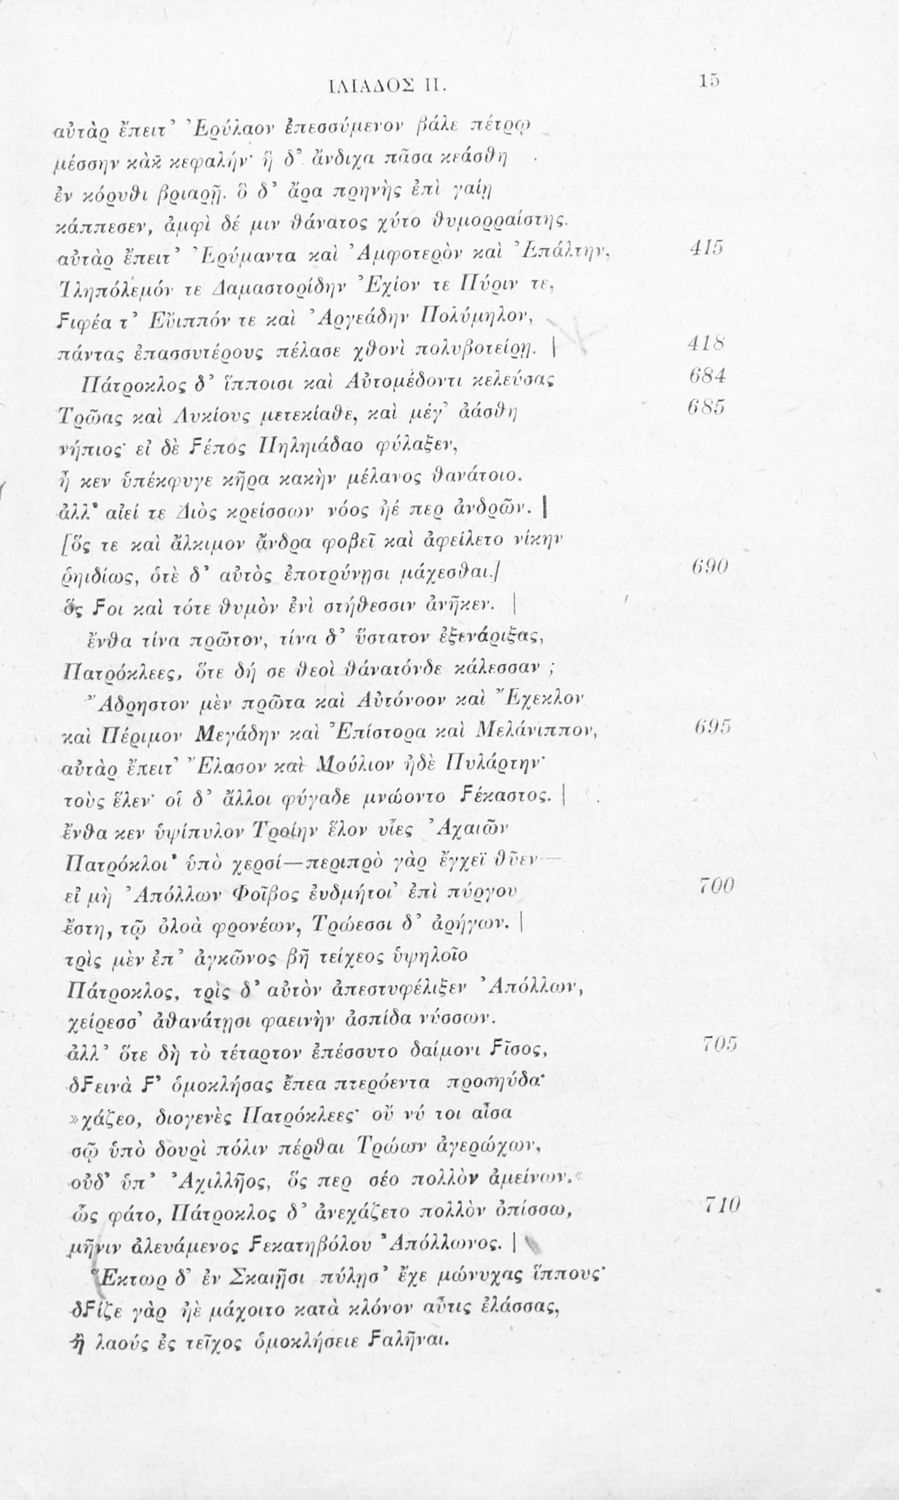 ΙΛΙΑΔΟΣ Π. 15
αὐτὰρ ἔπειτ’ Ἐρύλαον ἐπεσσύμενον βάλε πέτρῳ
μέσσην κὰκ κεφαλήν· ἣ δ’ ἄνδιχα πᾶσα κεάσθη
ἐν κόρυθι βριαρῇ. ὃ δ’ ἄρα πρηνὴς ἐπὶ γαίῃ
κάππεσεν, ἀμφὶ δέ μιν θάνατος χύτο θυμορραίστης.
αὐτὰρ ἔπειτ’ Ἐρύμαντα καὶ Ἀμφοτερὸν καὶ Ἐπάλτην, 415
Τληπόλεμόν τε Δαμαστορίδην Ἐχίον τε Πύριν τε,
Ϝιφέα τ’ Εὔιππόν τε καὶ Ἀργεάδην Πολύμηλον,
πάντας ἐπασσυτέρους πέλασε χθονὶ πολυβοτείρῃ. | 418
Πάτροκλος δ’ ἵπποισι καὶ Αὐτομέδοντι κελεύσας 684
Τρῶας καὶ Λυκίους μετεκίαθε, καὶ μέγ’ ἀάσθη 685
νήπιος· εἰ δὲ Ϝέπος Πηληιάδαο φύλαξεν,
ἦ κεν ὑπέκφυγε κῆρα κακὴν μέλανος θανάτοιο.
ἀλλ’ αἰεί τε Διὸς κρείσσων νόος ἠέ περ ἀνδρῶν. |
[ὅς τε καὶ ἄλκιμον ἄνδρα φοβεῖ καὶ ἀφείλετο νίκην
ῥηιδίως, ὁτὲ δ’ αὐτὸς ἐποτρύνῃσι μάχεσθαι.] 690
ὅς Ϝοι καὶ τότε θυμὸν ἐνὶ στήθεσσιν ἀνῆκεν. |
ἔνθα τίνα πρῶτον, τίνα δ’ ὕστατον ἐξενάριξας,
Πατρόκλεες, ὅτε δή σε θεοὶ θάνατόνδε κάλεσσαν ;
Ἄδρηστον μὲν πρῶτα καὶ Αὐτόνοον καὶ Ἔχεκλον
καὶ Πέριμον Μεγάδην καὶ Ἐπίστορα καὶ Μελάνιππον, 695
αὐτὰρ ἔπειτ’ Ἔλασον καὶ Μούλιον ἠδὲ Πυλάρτην·
τοὺς ἕλεν· οἱ δ’ ἄλλοι φύγαδε μνώοντο Ϝέκαστος. |
ἔνθα κεν ὑψίπυλον Τροίην ἕλον υἷες Ἀχαιῶν
Πατρόκλοι’ ὑπὸ χερσί—περιπρὸ γὰρ ἔγχεϊ θῦεν—
εἰ μὴ Ἀπόλλων Φοῖβος ἐυδμήτοι’ ἐπὶ πύργου 700
ἔστη, τῷ ὀλοὰ φρονέων, Τρώεσσι δ’ ἀρήγων. |
τρὶς μὲν ἐπ’ ἀγκῶνος βῆ τείχεος ὑψηλοῖο
Πάτροκλος, τρὶς δ’ αὐτὸν ἀπεστυφέλιξεν Ἀπόλλων,
χείρεσσ’ ἀθανάτῃσι φαεινὴν ἀσπίδα νύσσων.
ἀλλ’ ὅτε δὴ τὸ τέταρτον ἐπέσσυτο δαίμονι Ϝῖσος, 705
δϜεινὰ Ϝ’ ὁμοκλήσας ἔπεα πτερόεντα προσηύδα·
»χάζεο, διογενὲς Πατρόκλεες· οὔ νύ τοι αἶσα
σῷ ὑπὸ δουρὶ πόλιν πέρθαι Τρώων ἀγερώχων,
οὐδ’ ὑπ’ Ἀχιλλῆος, ὅς περ σέο πολλὸν ἀμείνων.«
ὣς φάτο, Πάτροκλος δ’ ἀνεχάζετο πολλὸν ὀπίσσω, 710
μῆνιν ἀλευάμενος Ϝεκατηβόλου Ἀπόλλωνος. |
Ἕκτωρ δ’ ἐν Σκαιῇσι πύλῃσ’ ἔχε μώνυχας ἵππους·
δϜίζε γὰρ ἠὲ μάχοιτο κατὰ κλόνον αὖτις ἐλάσσας,
ἦ λαοὺς ἐς τεῖχος ὁμοκλήσειε Ϝαλῆναι.